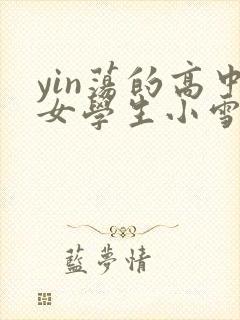 yin蕩的高中
女學生小雪
藍夢情